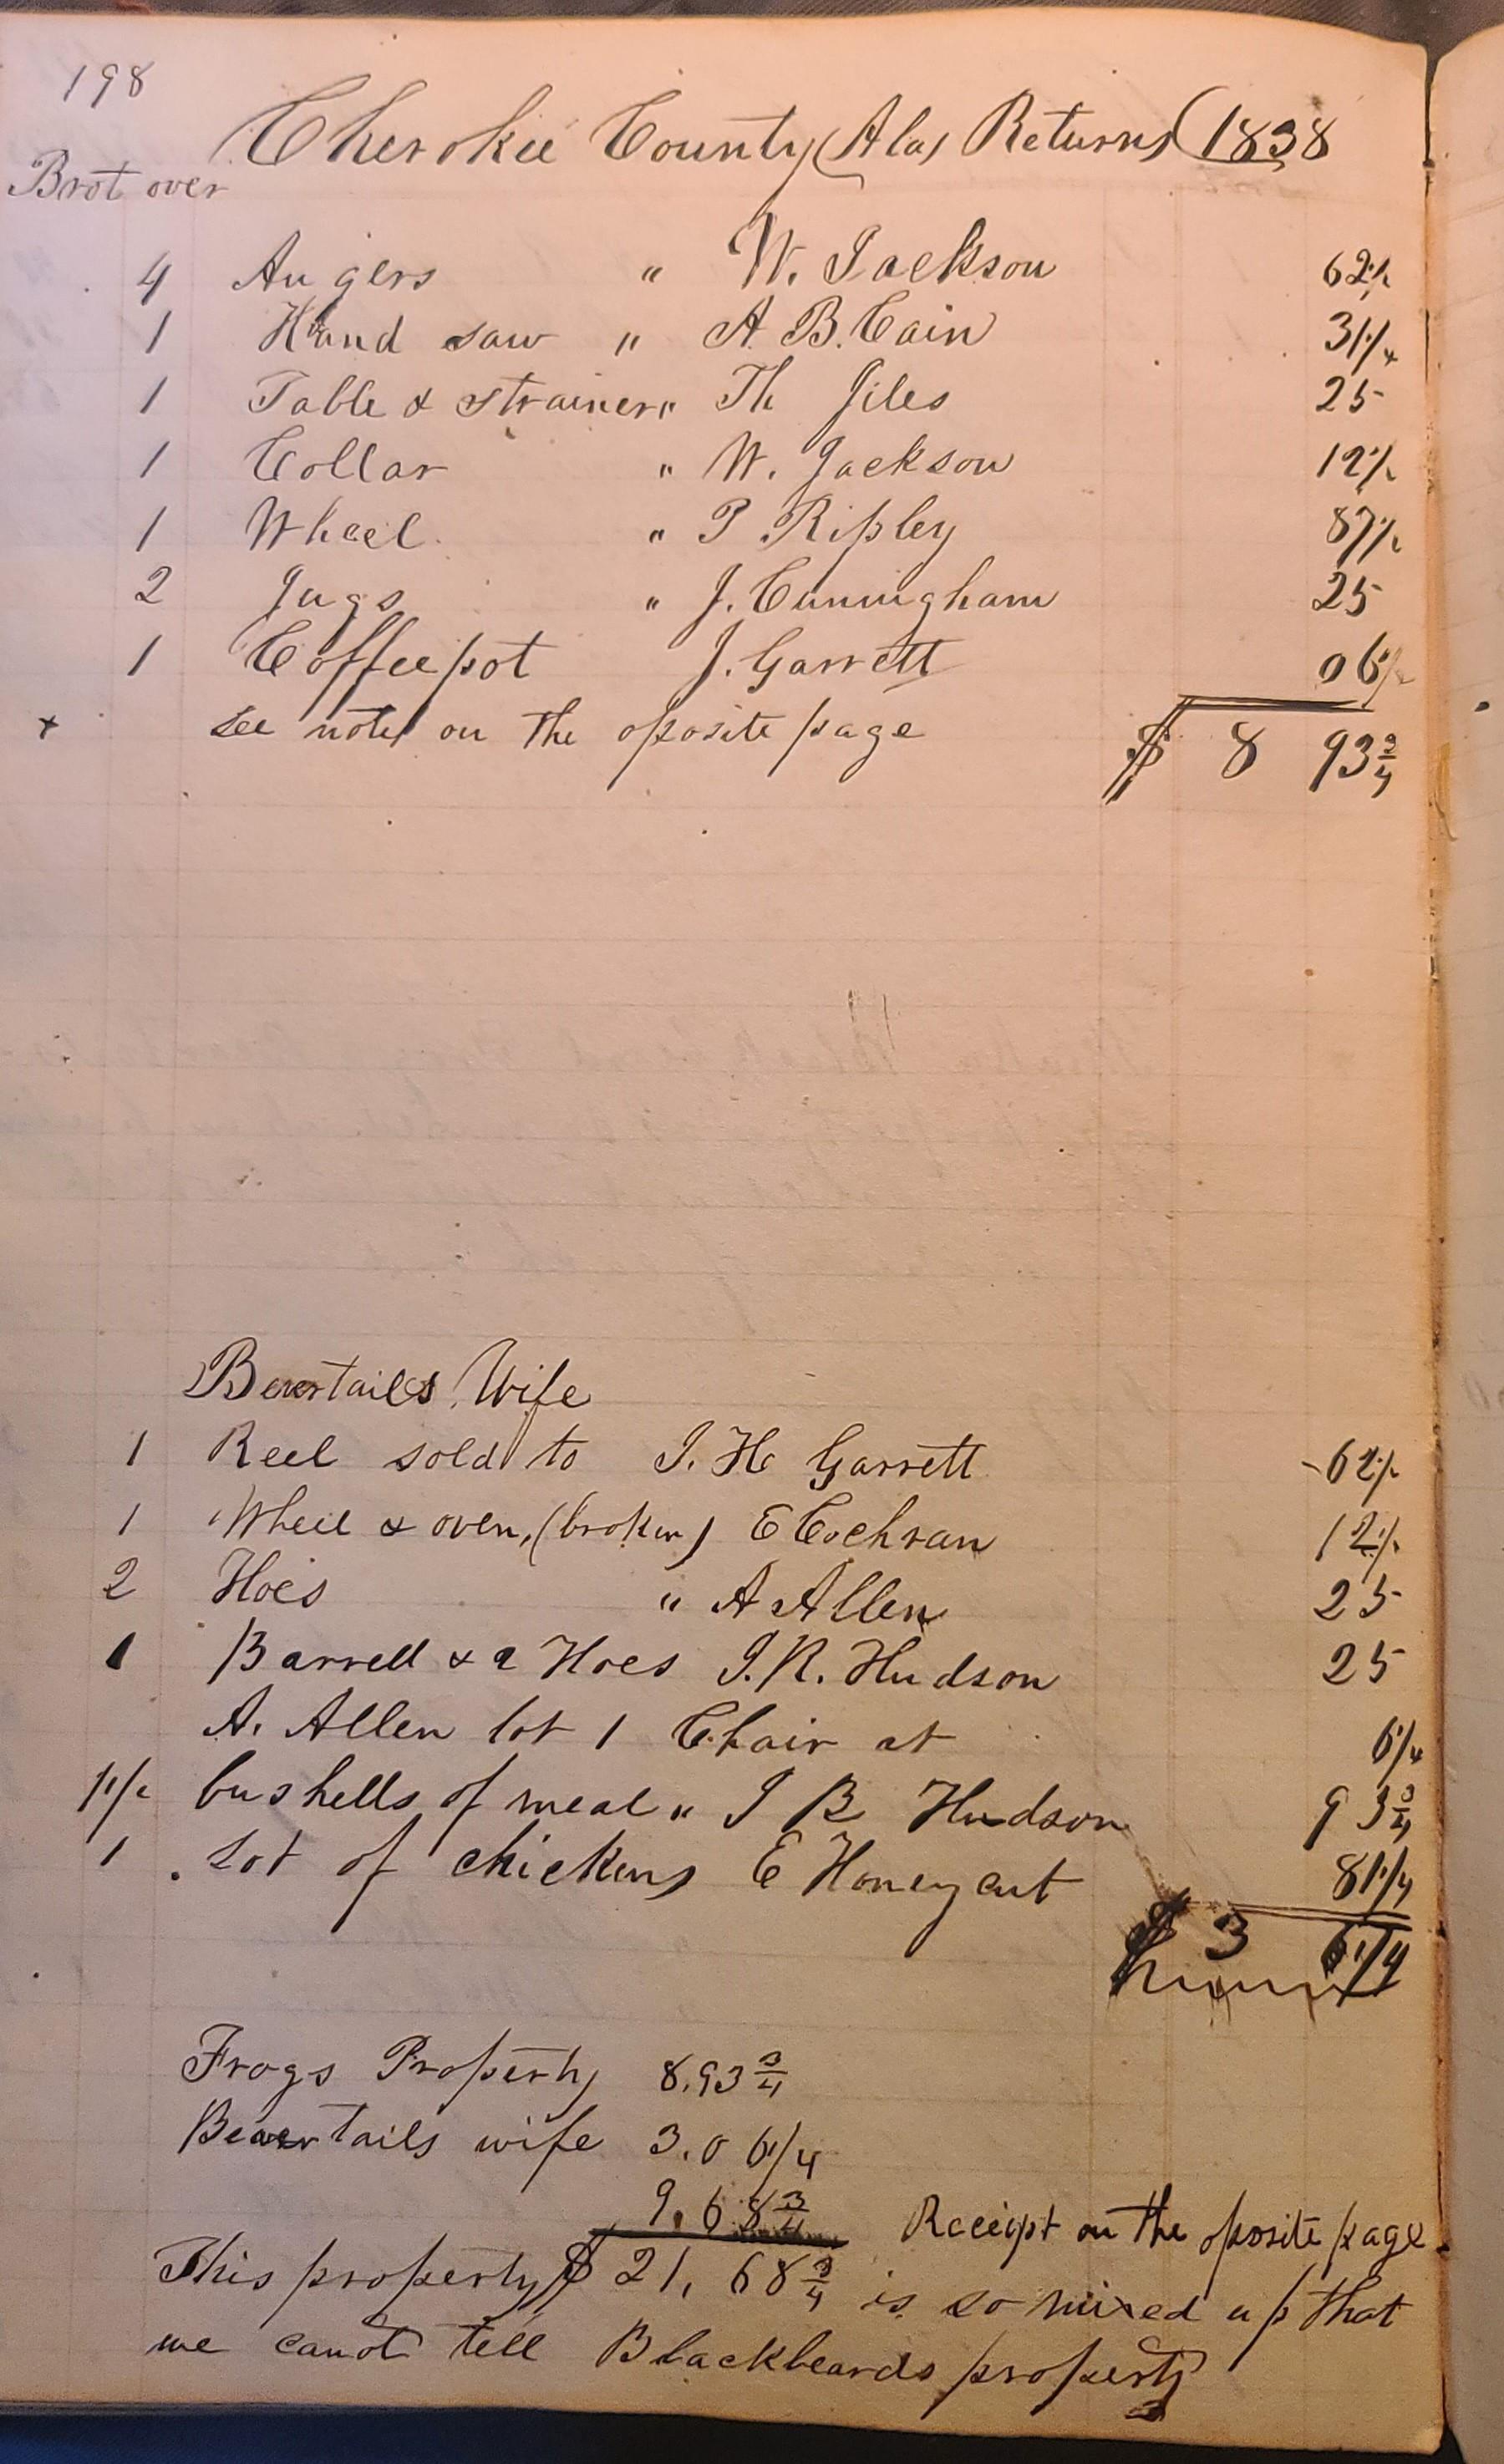 198
Cherokee County (Ala) Returns (1838
Brot over
4 Augers " W. Jackson 62½
1 Hand saw " A B. Cain 31¼
1 Table & strainer " Th Giles 25
1 Collar " W. Jackson 12½
1 Wheel " P Ripley 87½
2 Jugs " J. Cuningham 25
1 Coffee pot J. Garrett 06¼
x see note on the oposite page $ 8 93¾
Beavertails Wife
1 Reel sold to J. H Garrett 62½
1 Wheel & oven, (broken) E Cochran 12½
2 Hoes " A Allen 25
1 Barrell & 2 Hoes J. R. Hudson 25
A. Allen lot 1 Chair at 6¼
1½ bushells of meal " J B Hudson 93¾
1 Lot of chickens E Honeycut 81¼
$ 3 6¼
Frogs Property 8.93¾
Beavertails wife 3.06¼
9.68¾ Receipt on the oposite page
This property $ 21,68¾ is so mixed up that
we canot tell Blackbeards property